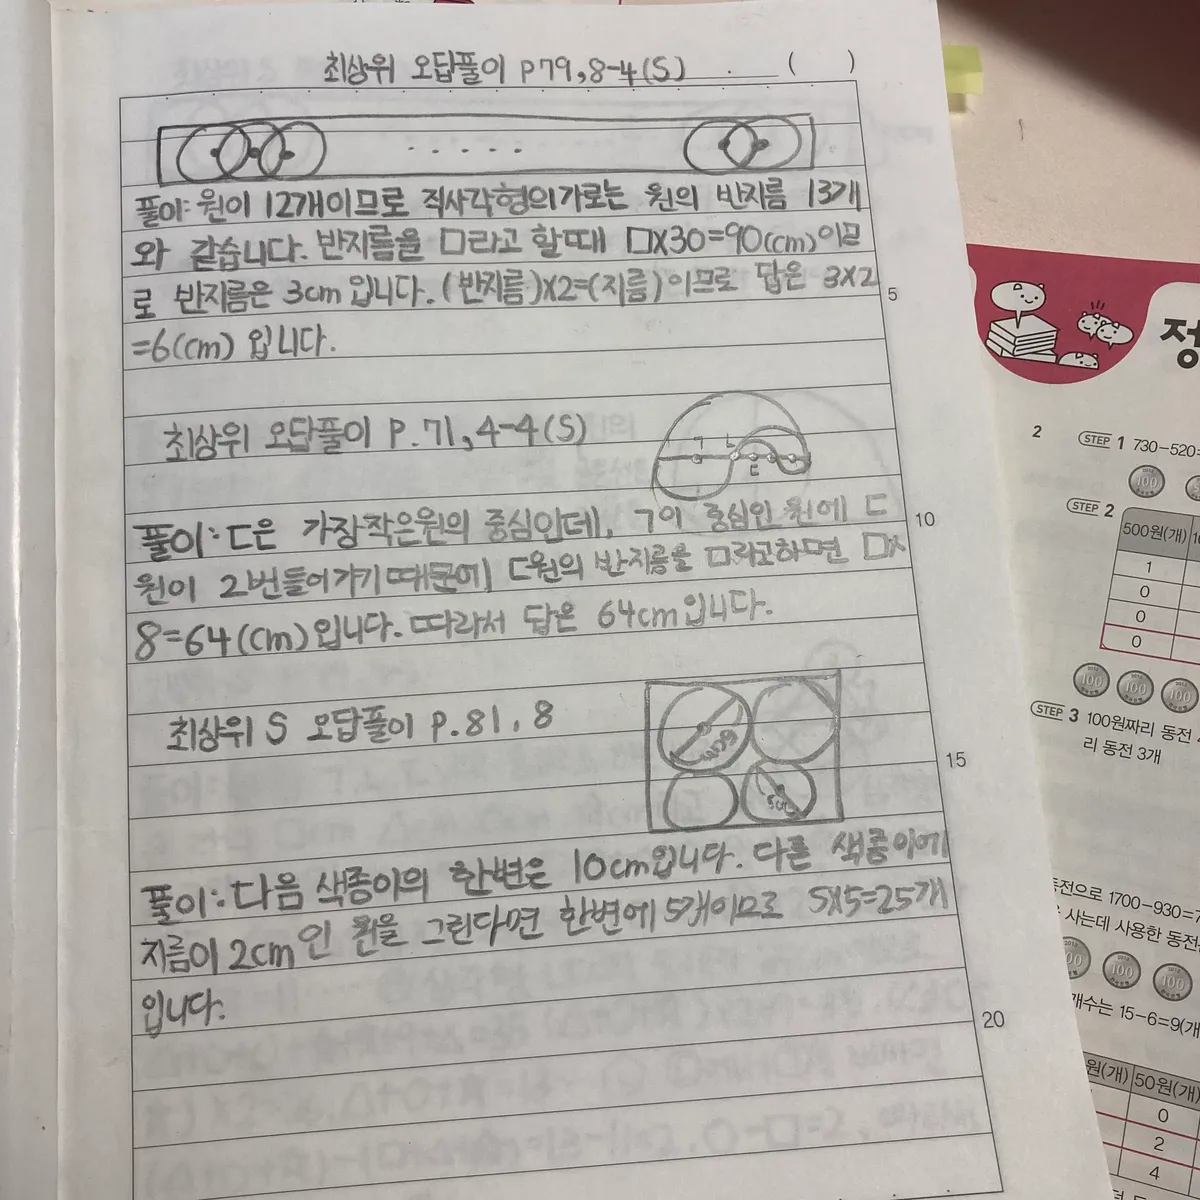 최상위 오답풀이 P79, 8-4(S)
( )
풀이: 원이 12개이므로 직사각형의가로는 원의 반지름 13개
와 같습니다. 반지름을 □라고 할때 □X30=90(cm)이므
로 반지름은 3cm 입니다. (반지름)X2=(지름)이므로 답은 3X2
=6(cm) 입니다.
5
최상위 오답풀이 P.71, 4-4(S)
ㄱ ㄴ
ㄷ
풀이: ㄷ은 가장작은원의 중심인데, ㄱ이 중심인 원에 ㄷ
10
원이 2번들어가기때문에 ㄷ원의 반지름을 □라고하면 □X
8=64(cm)입니다. 따라서 답은 64cm입니다.
최상위 S 오답풀이 P.81, 8
15
풀이: 다음 색종이의 한변은 10cm입니다. 다른 색종이에
지름이 2cm인 원을 그린다면 한변에 5개이므로 5X5=25개
입니다.
20
정
2
STEP 1 730-520=
100
STEP 2
500원(개)
1
0
0
0
100 100 100
STEP 3 100원짜리 동전
리 동전 3개
동전으로 1700-930=7
사는데 사용한 동전
100 100
개수는 15-6=9(개
원(개) 50원(개)
0
2
4